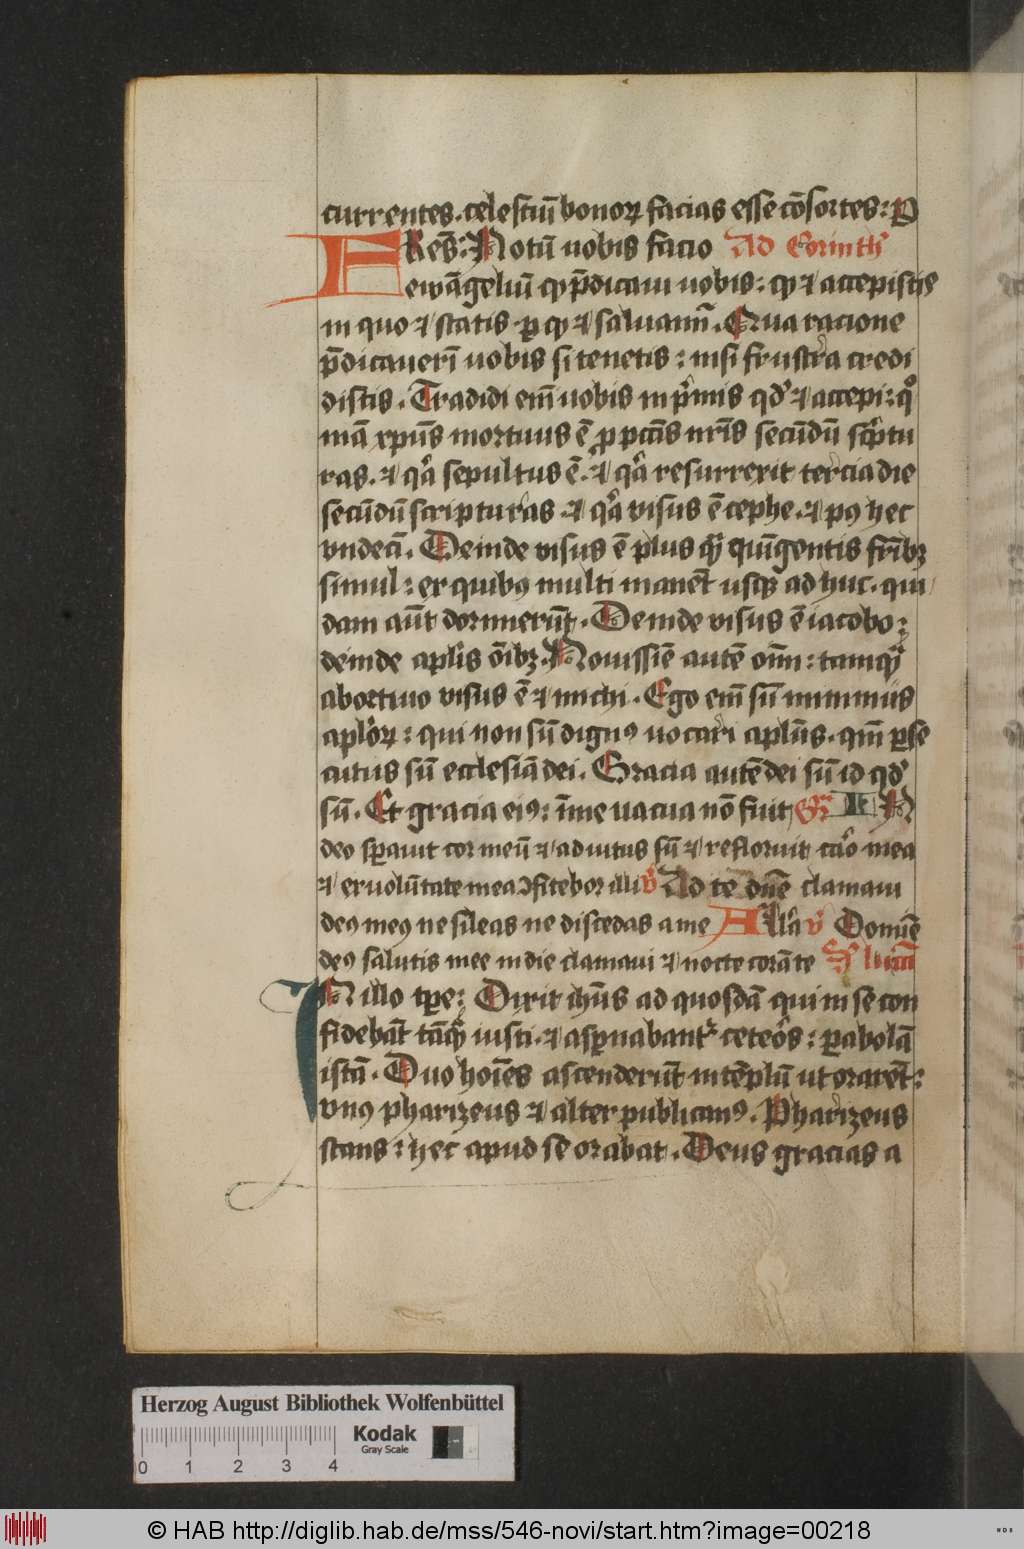 currentes. celestiū bonoꝝ facias esse ↄ̄sortes: P
FRes̄: Notū uobis facio Ad Corinth̓
ewāgeliū qͦ p̄dicaui uobis: qͦ ⁊ accepistis
in quo ⁊ statis ꝑ qͦ ⁊ saluamī. Qua racione
p̄dicauerī uobis si tenetis: nisi frustra credi
distis. Tradidi em̄ uobis in pͥmis qd̓ ⁊ accepi: qͦ
niā xpūs mortuus ē ꝓ pctīs nr̄is secūdū scͥptu
ras. ⁊ qͣ sepultus ē. ⁊ qͣ resurrexit tercia die
secūdū scripturas. ⁊ qͣ visus ē cephe. ⁊ pꝰ hec
vndecī. Deinde visus ē plus qͣ̄ quīgentis fr̄ibꝫ
simul: ex quibꝰ multi manēt usqꝫ ad huc. qui
dam aūt dormierūt. Deinde visus ē iacobo:
deinde aplīs oībꝫ. Nouissīe autē oīm: tamqͣ̄
abortiuo visus ē ⁊ michi. Ego em̄ sū minimus
aploꝝ: qui non sū dignꝰ uocari aplūs. qm̄ ꝑse
cutus sū ecclesiā dei. Gracia autē dei sū id qd̓
sū. Et gracia eiꝰ: ī me uacua nō fuit Gͬ IN
deo sꝑauit cor meū ⁊ adiutus sū ⁊ refloruit caͦ mea
⁊ ex volūtate mea ↄfitebor illi v̓ Ad te dn̄e clamaui
deꝰ meꝰ ne sileas ne discedas a me Allͣa v̓ Domīe
deꝰ salutis mee in die clamaui ⁊ nocte corā te S̓ lucā
IN illo tꝑe: Dixit ihūs ad quosdā qui in se con
fidebāt tāqͣ̄ iusti. ⁊ aspnabant̓ ceteos̓: ꝑabolā
istā. Duo hoīes ascenderūt in tēplū ut orarēt:
vnꝰ pharizeus ⁊ alter publicanꝰ. Pharizeus
stans: hec apud se orabat. Deus gracias a
Herzog August Bibliothek Wolfenbüttel
Kodak
Gray Scale
0 1 2 3 4
© HAB http://diglib.hab.de/mss/546-novi/start.htm?image=00218